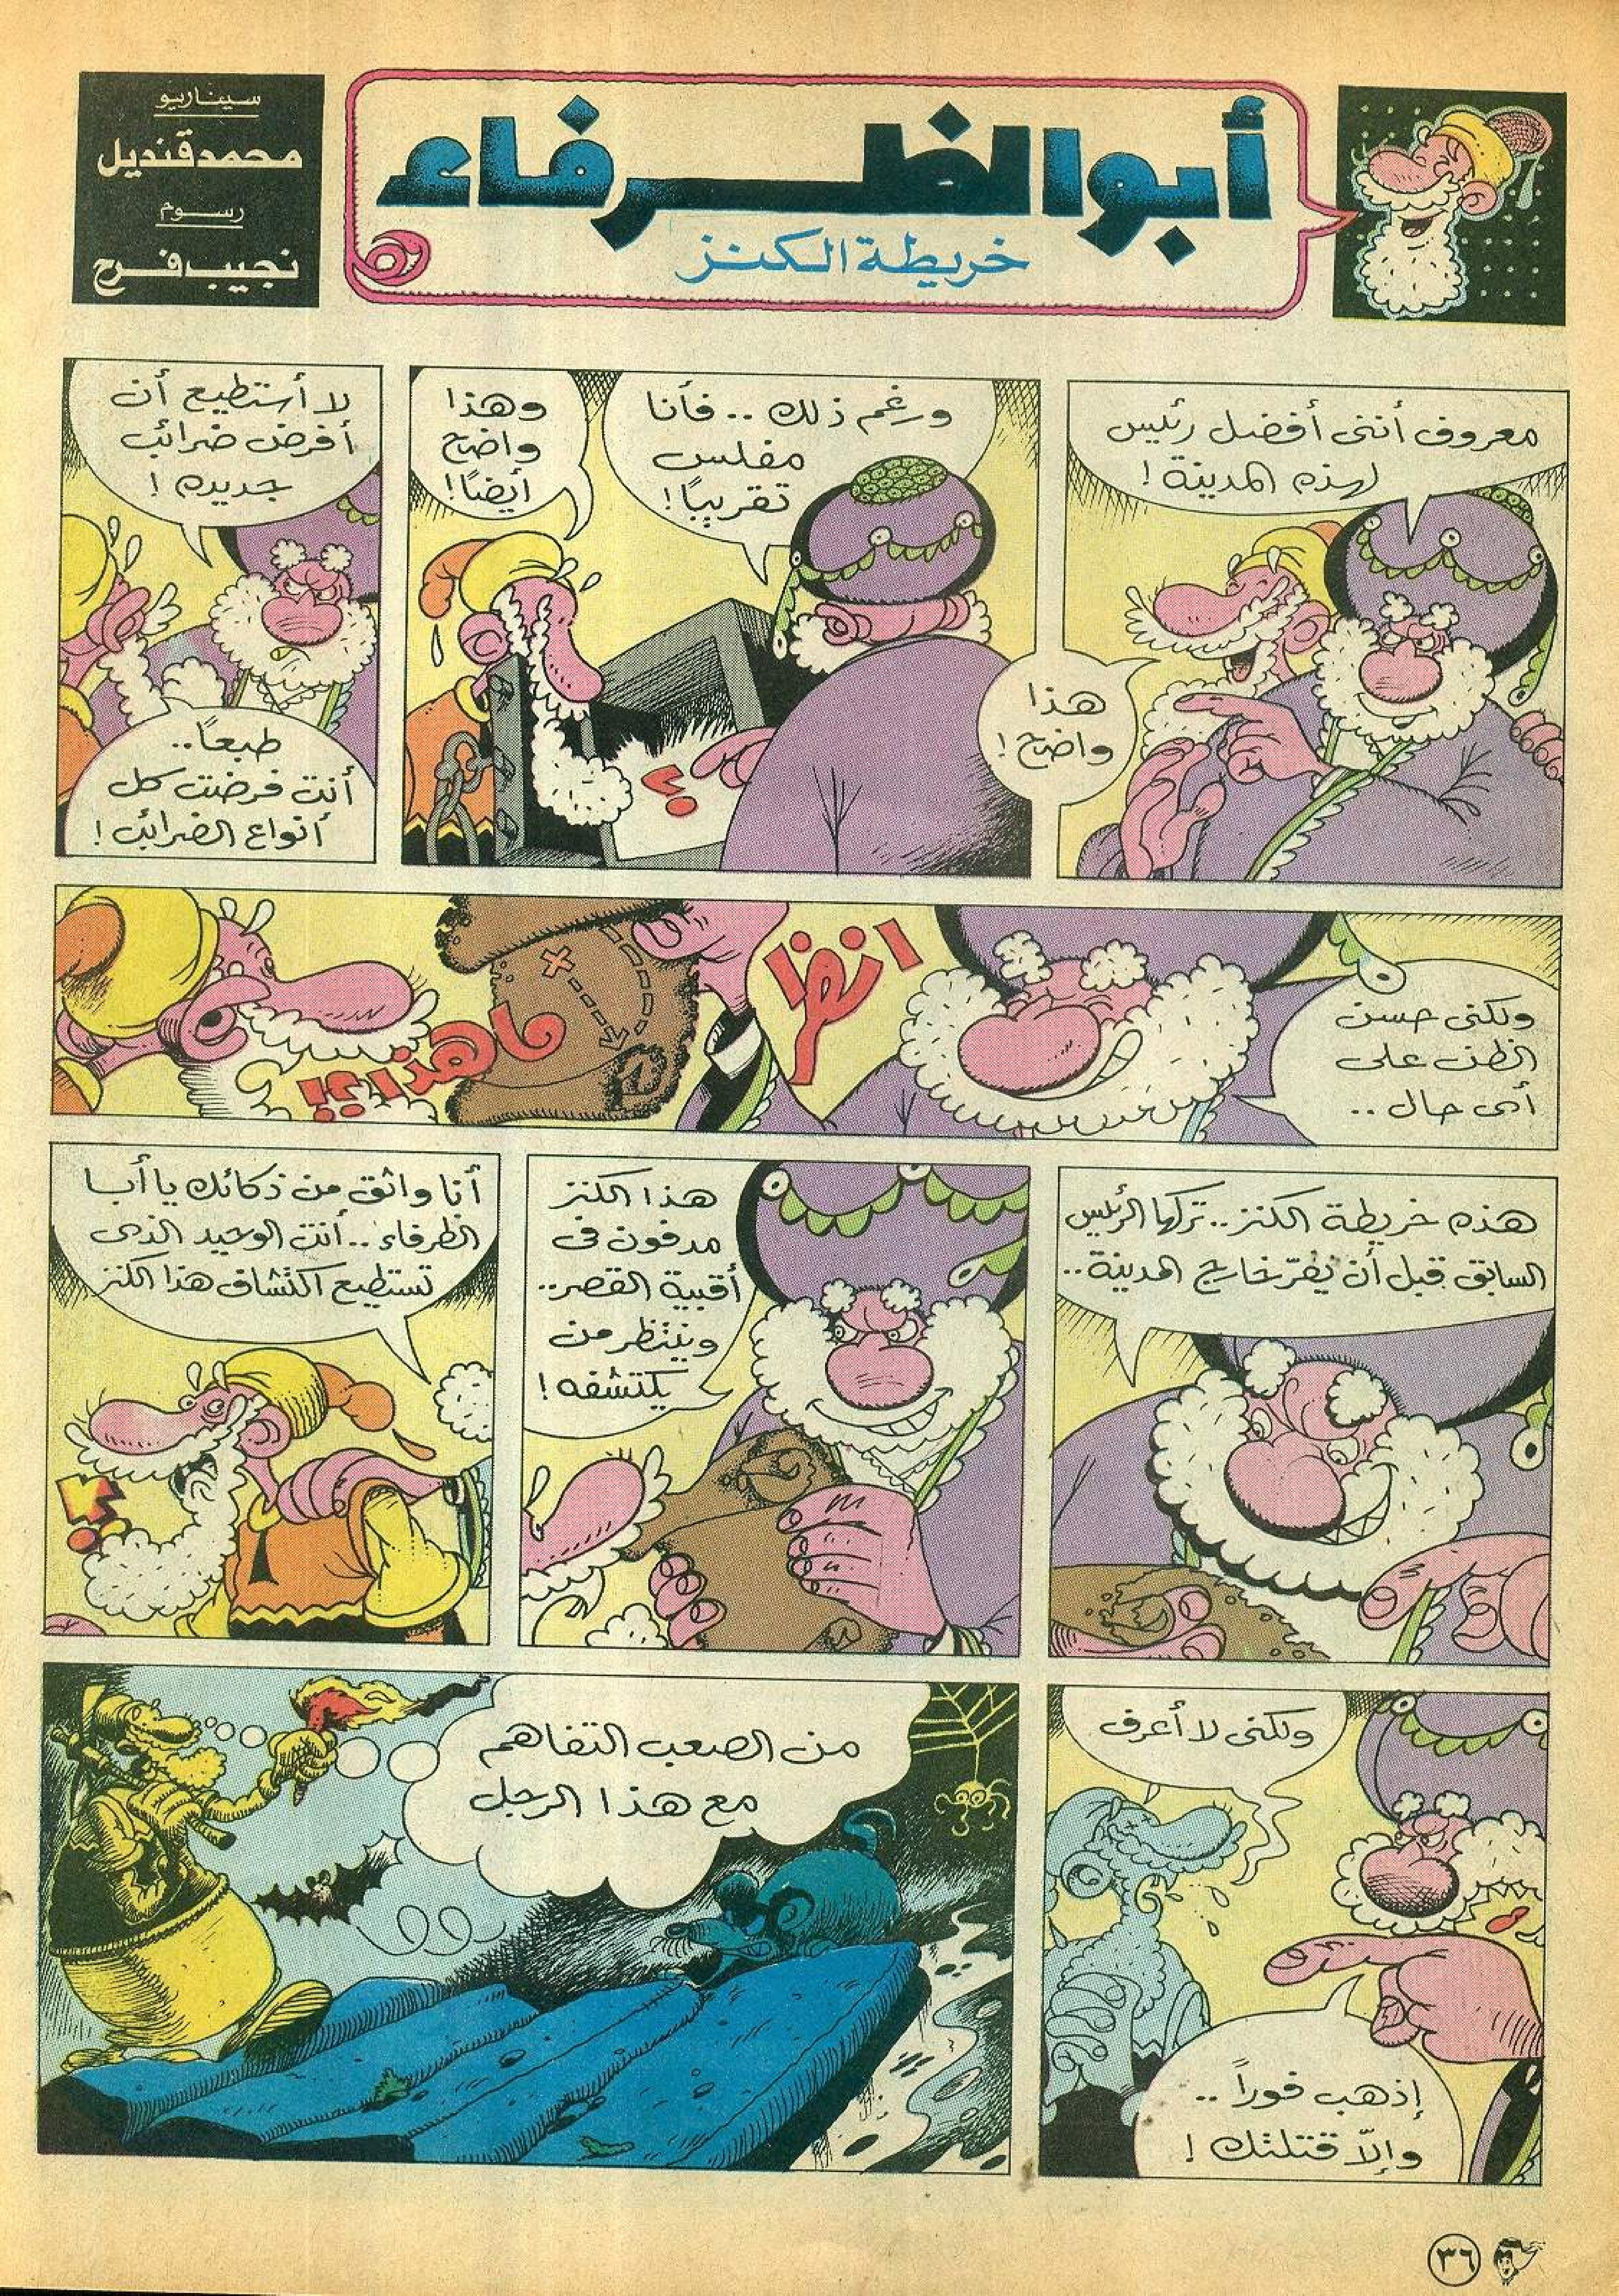 أبو الظرفاء
خريطة الكنز
سيناريو
محمد قنديل
رسوم
نجيب فرح
معروف أننى أفضل رئيس
لهذه المدينة !
هذا
واضح !
ورغم ذلك .. فأنا
مفلس
تقريبًا !
وهذا
واضح
أيضًا !
؟
لا أستطيع أن
أفرض ضرائب
جديده !
طبعاً ..
أنت فرضت كل
أنواع الضرائب !
ولكنى حسن
الظن على
أى حال ..
انظر
ما هذا ؟!
هذه خريطة الكنز .. تركها الرئيس
السابق قبل أن يفرّ خارج المدينة ..
هذا الكنز
مدفون فى
أقبية القصر ..
وينتظر من
يكتشفه !
أنا واثق من ذكائك يا أبا
الظرفاء .. أنت الوحيد الذى
تستطيع اكتشاف هذا الكنز
؟
ولكنى لا أعرف
إذهب فوراً ..
وإلاّ قتلتك !
من الصعب التفاهم
مع هذا الرجل
٣٦